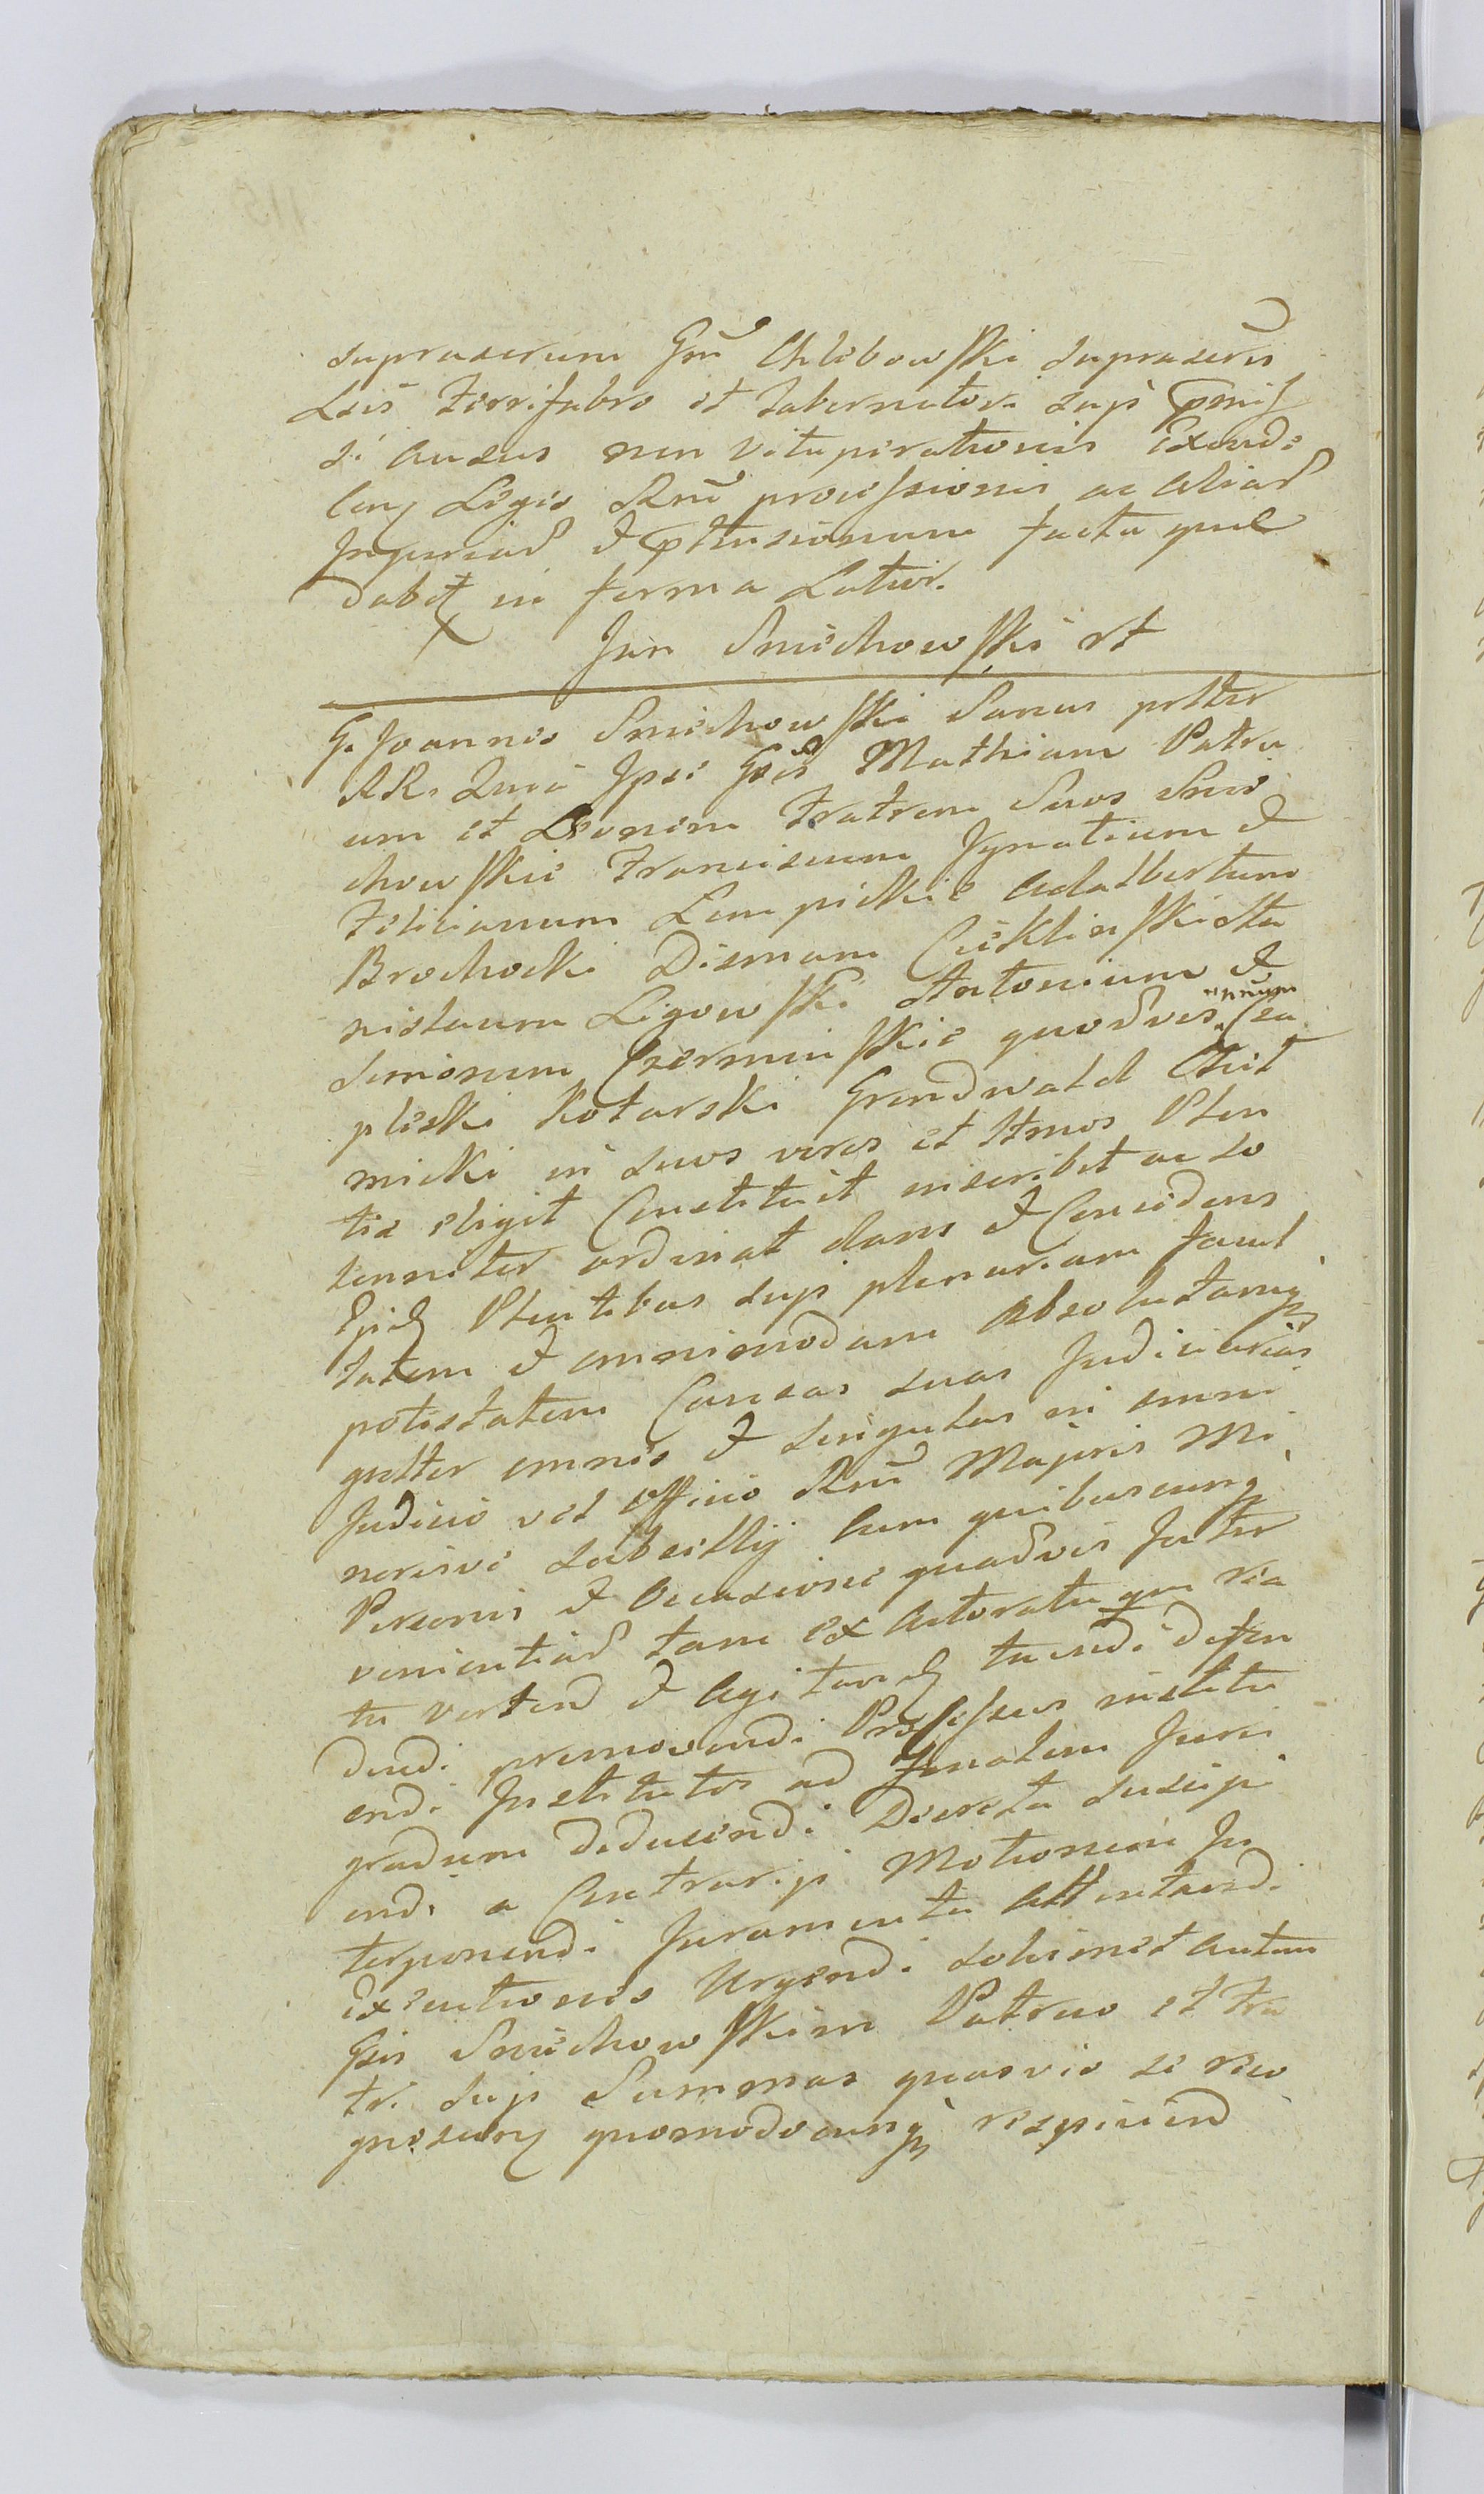 supraserum Gm̃ Chlibowski supraseris
Lris ferrifabro et tabernatori sup̃
si ausus non vituperationis Exind
Leg Legis Rm̃ processionis ac aliar
Injuriar et ptensionum facta quel
dabit in forma Latior.
Jan Smichowski rt
G. Joannes Smichowski Sanus pttr
RR. Quia Ipse Gsis Mathiam Patru
um et Leonem Fratrem Suos Smi
chowskie Franciscum Ignatium et
Felicianum Lempickie Adalbertum
Brochocki Dismam Cieklinski Sta
nislaum Ligowski Antonium et
Simonem Czerminskie quosvis Cza
pliski Kotarski Grondwald Chit
micki in suos veros et ltmos Plen
tes eligit Constituit inscribit ac so
lenniter ordinat dans et Concedens
Plentibus sup̃ plenariam facul
tatem et omnimodam absolutamq
potestatem Causas suas Judiciarias
gnltter omnes et singulas in omni
Judicio vel Officio Rm̃ Majoris Mi
norisve Subselly cum quibuscunq
Personis et Occasione quadvis Juster
venientiar tam ex Actoratu qm rea
tu verten et Agitand tuendi defen
dendi promovendi Processus institu
endi Institutos ad finalem Juris
gradum deducendi Decreta suscipi
endi a Contrarijs Motionem In
terponendi Juramenta Attentandi
Executiones Urgendi solumet autem
Gsis Smichowskim Patruo et Fra
tri sup̃ Summas quasvis se reco
gnoscen quomodocunq respicien